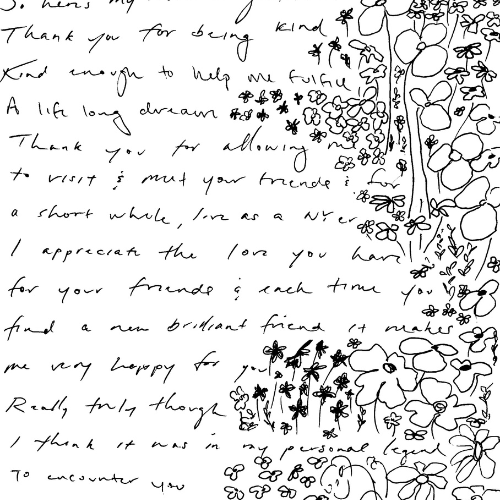 So here's my
Thank you for being kind
Kind enough to help me fulfill
A life long dream
Thank you for allowing me
to visit & meet your friends & for
a short while, live as a NYer
I appreciate the love you have
for your friends & each time you
find a new brilliant friend it makes
me very happy for you
Really truly though
I think it was in my personal legend
To encounter you